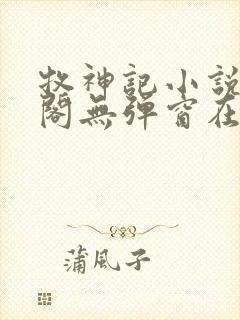 牧神記小說
閣無彈窗在
蒲風子